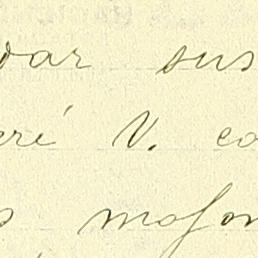 dar sus
eré V. co
s mojon